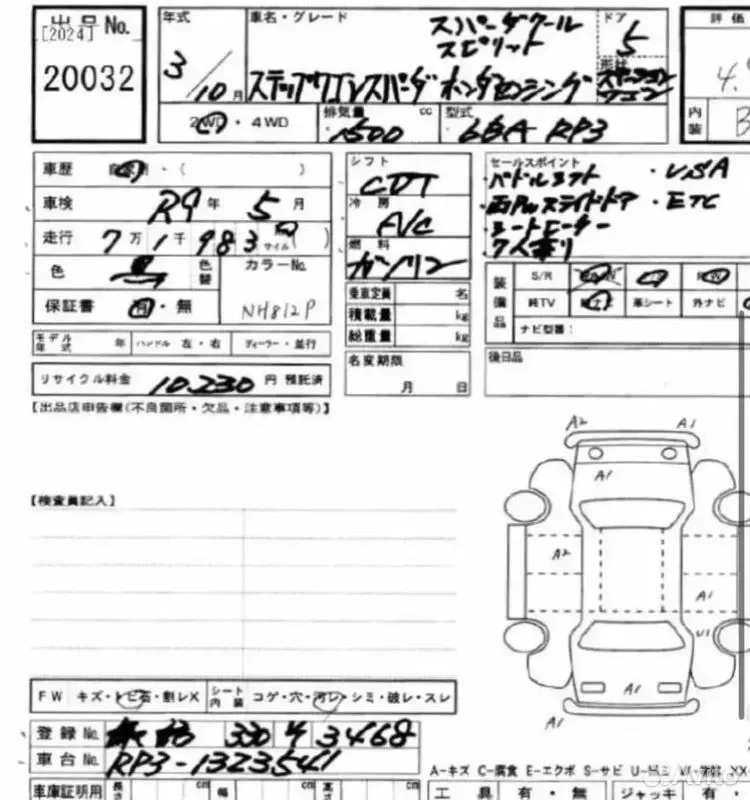 出品 No.
[2024]
20032
年式
3/10月
車名・グレード
スパーダクール
スピリット
ステップワゴンスパーダ ホンダセンシング
ドア
5
形状
ステーション
ワゴン
評価
内装
B
2WD・4WD
排気量 cc
1500
型式
6BA RP3
車歴 自家用・( )
車検 R9年 5月
走行 7万1千983 km マイル ( )
色 黒 色替
カラーNo.
NH812P
保証書 有・無
モデル年式 年 ハンドル 左・右 ディーラー・並行
リサイクル料金 10,230 円 預託済
シフト
CVT
冷房
A/C
燃料
ガソリン
乗車定員 名
積載量 kg
総重量 kg
名変期限
月 日
セールスポイント
・パドルシフト ・VSA
・両PWスライドドア ・ETC
・シートヒーター
・7人乗り
装備品
S/R
純TV 革シート 外ナビ
ナビ型番:
後日品
【出品店申告欄(不良箇所・欠品・注意事項等)】
【検査員記入】
A2 A1
A1
A2
A1
U1
A1
A1
FW キズ・トビ石・割レX シート内装 コゲ・穴・汚レ・シミ・破レ・スレ
登録No. 330 3468
車台No. RP3-1323541
A-キズ C-腐食 E-エクボ S-サビ U-ヘコミ
車庫証明用 長さ cm 幅 cm 高さ cm
工具 有・無 ジャッキ 有・
Avito